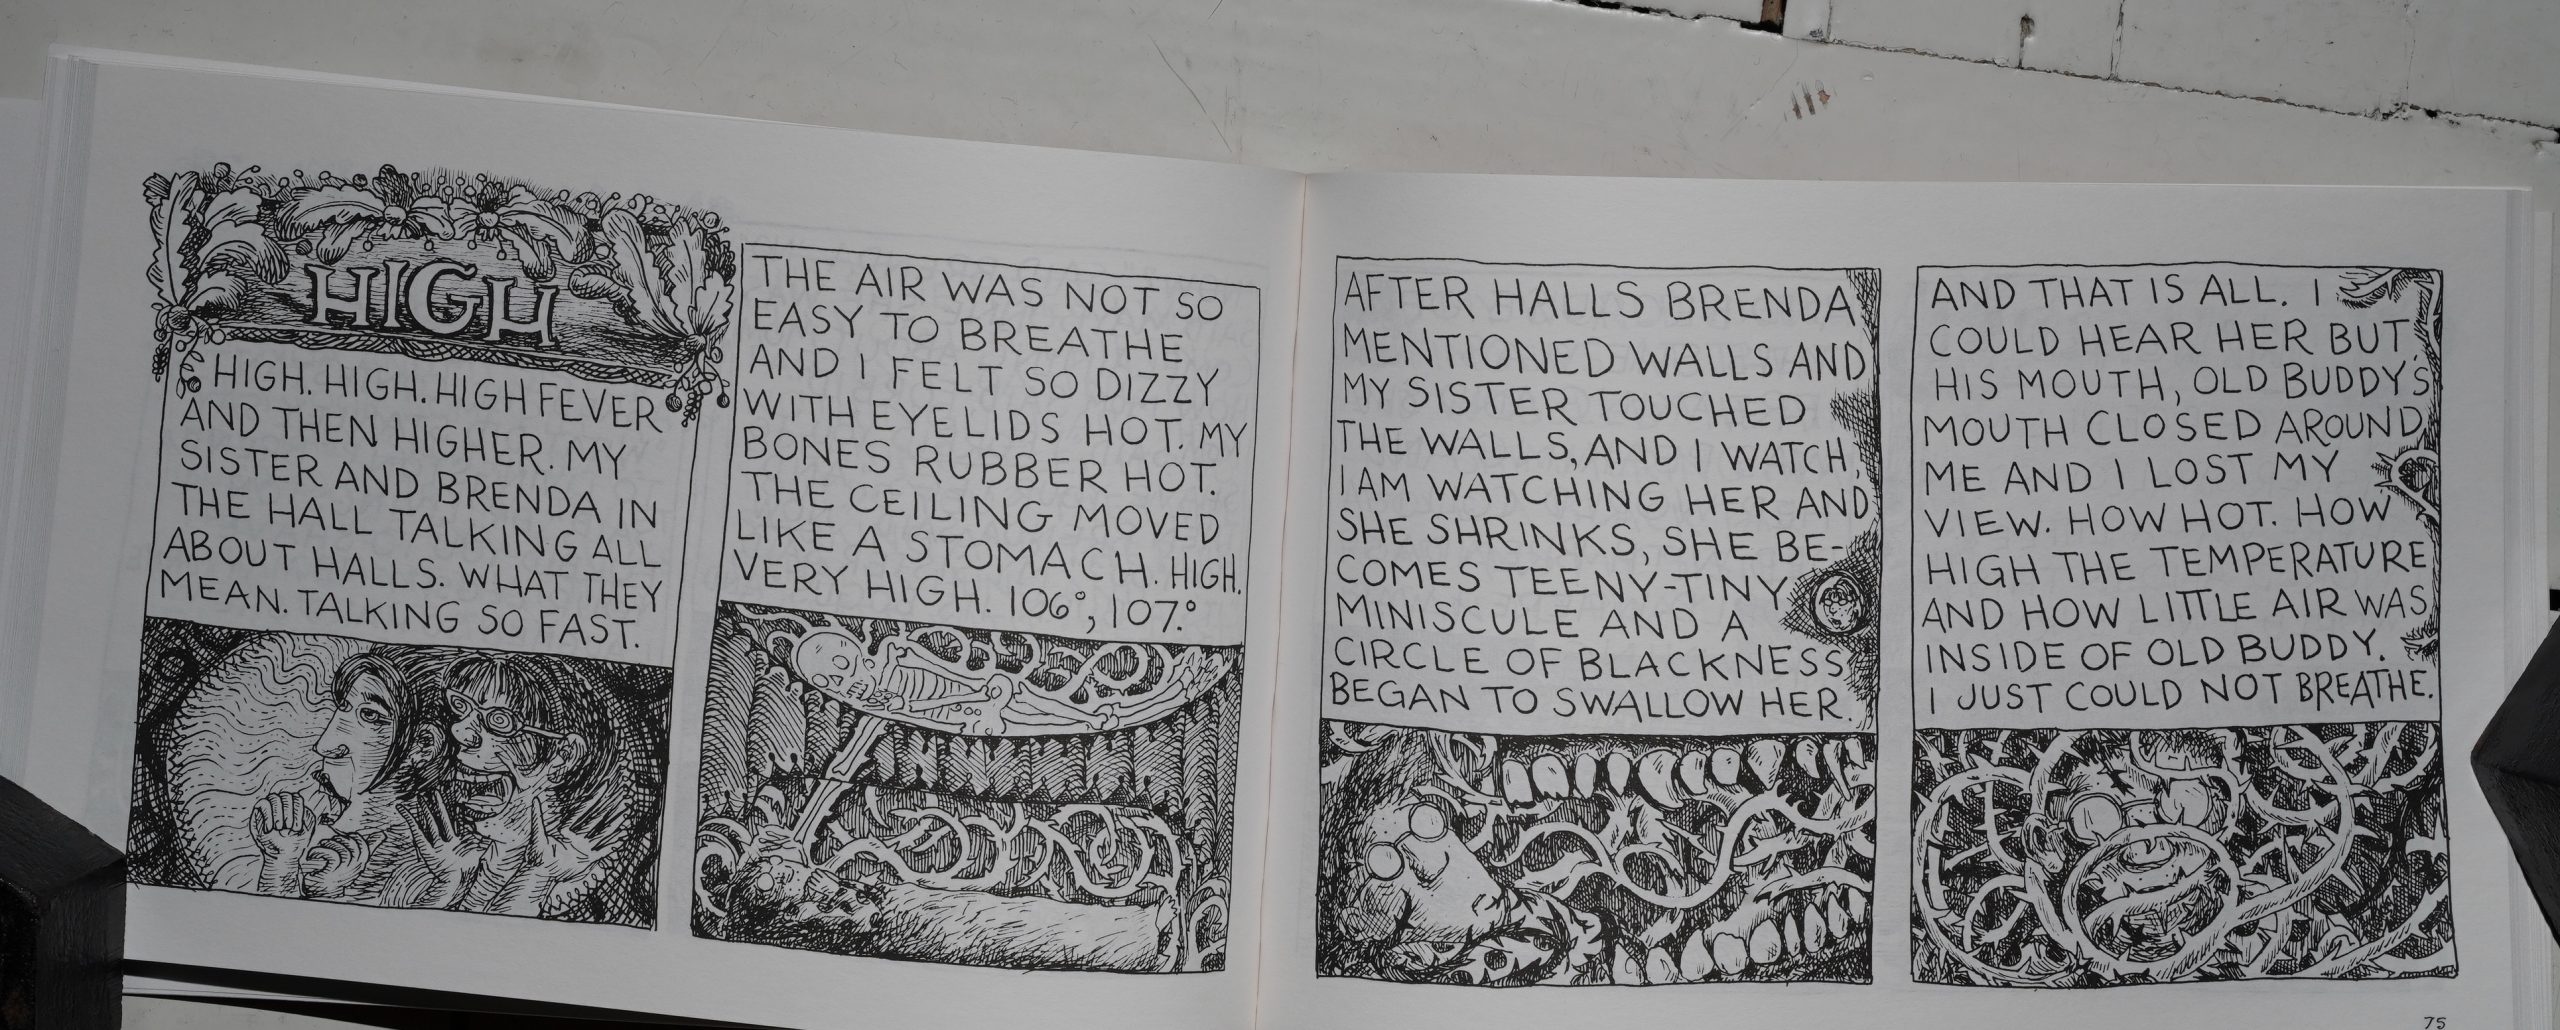 HIGH
HIGH. HIGH. HIGH FEVER
AND THEN HIGHER. MY
SISTER AND BRENDA IN
THE HALL TALKING ALL
ABOUT HALLS. WHAT THEY
MEAN. TALKING SO FAST.
THE AIR WAS NOT SO
EASY TO BREATHE
AND I FELT SO DIZZY
WITH EYELIDS HOT. MY
BONES RUBBER HOT.
THE CEILING MOVED
LIKE A STOMACH. HIGH.
VERY HIGH. 106°, 107.°
AFTER HALLS BRENDA
MENTIONED WALLS AND
MY SISTER TOUCHED
THE WALLS, AND I WATCH,
I AM WATCHING HER AND
SHE SHRINKS, SHE BE-
COMES TEENY-TINY
MINISCULE AND A
CIRCLE OF BLACKNESS
BEGAN TO SWALLOW HER.
AND THAT IS ALL. I
COULD HEAR HER BUT
HIS MOUTH, OLD BUDDY'S
MOUTH CLOSED AROUND
ME AND I LOST MY
VIEW. HOW HOT. HOW
HIGH THE TEMPERATURE
AND HOW LITTLE AIR WAS
INSIDE OF OLD BUDDY.
I JUST COULD NOT BREATHE.
75